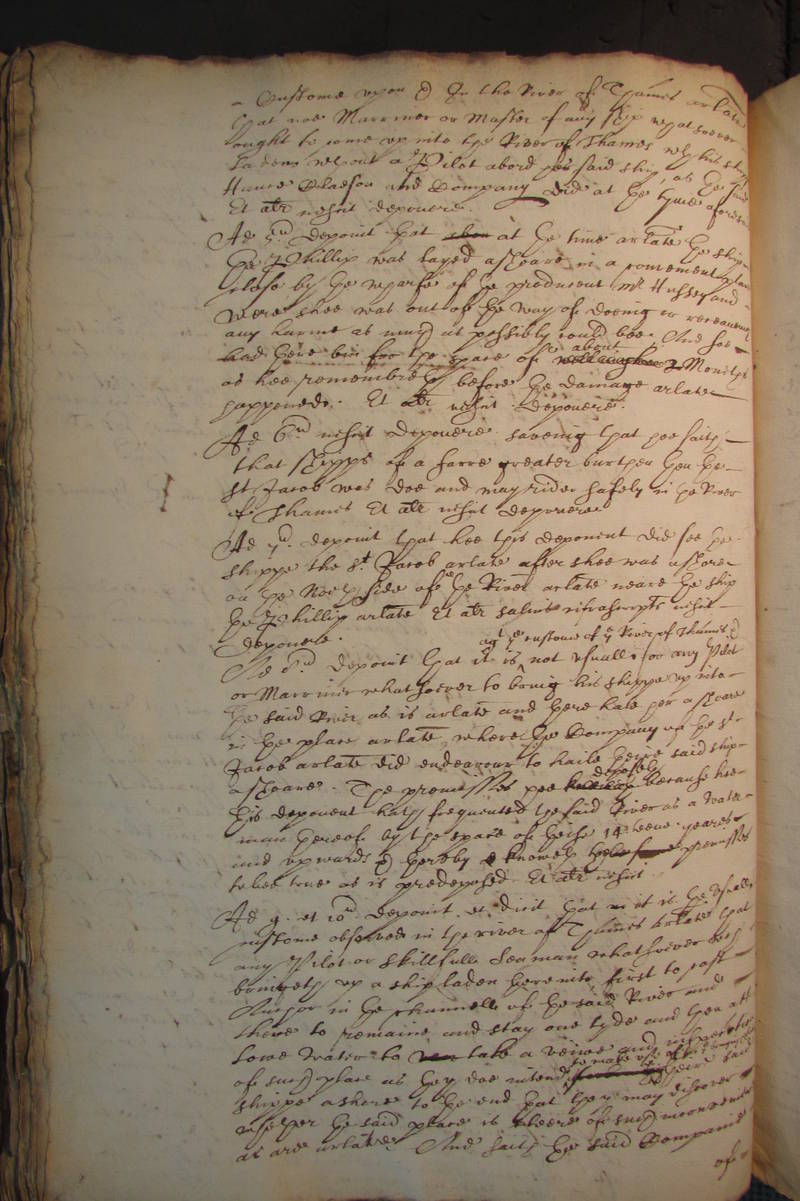 a Custome upon & In the River of Thames arlate
that noe Marriner or Master of any ship whatsoever
ought to come up into the River of Thames with his ship
Laden without a Pilot abord his said ship as the said
Hance Claeson and Company did at the tyme aforesaid
Et aliter nescit deponere.
Ad 5um deponit that at the time arlate the shipp
the Phillip was layed ashoare in a convenient place
close by the wharfe of the producent Mr Hussey and
were shee was out of the way of doeing or receaveing
any harme as much as possibly could bee. And soe
had there bin for the space of about 2 Moneths
as hee remembreth before the damage arlate
happened. Et aliter nescit deponere.
Ad 6um nescit deponere saveing that hee saith
that shipps of a farre greater burthen then the
St Jacob was doe and may rider safely in the River
of Thames Et aliter nescit deponere
Ad 7um deponit that hee this deponent did see the
shippe the St Jacob arlate after shee was ashore
on the North side of the River arlate neare the ship
the Phillip arlate Et aliter nescit
deponere.
agt ye custome of ye River of Thames &
Ad 8um deponit that it is not usuall for any Pilot
or Marriner whatsoever to bring his shippe up into
the said River as is arlate and there hale her ashoare
in the place arlate, where the Company of the St
Jacob arlate did endeavour to haile theire said ship
ashoare. The premisses hee deposeth because hee
this deponent hath frequented the said River as a Water
man thereof by the space of theise 14teene yeares
and upwards & thereby knoweth premisses
to bee true as is predeposed Et aliter nescit.
Ad 9 et 10um deponit et dicit that it is the usuall
custome observed in the river of Thames arlate that
any Pilot or skillfull Seaman whatsoever that
bringeth up a ship laden thereinto first to cast
Anchor in the channell of the said River and
there to remaine and stay one tyde and then att
lowe water to take a veiwe and inspection
of such place as they doe intend to make use of theire said
shippe ashore to the end that they may discover
whether the said place is cleere of such
as are arlate. And saith the said Companie
of